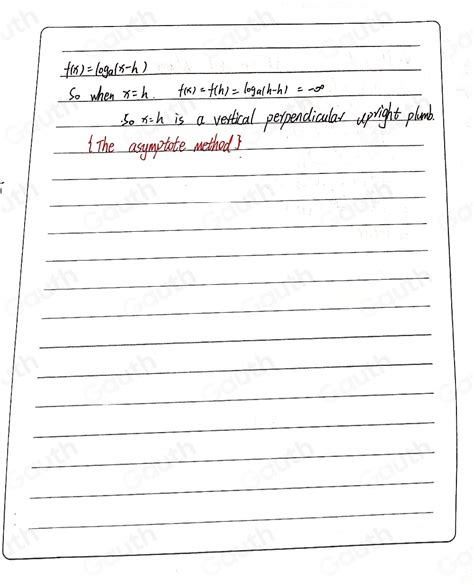 f(x) = logₐ(x-h)
So when x=h. f(x) = f(h) = logₐ(h-h) = -∞
So x=h is a vertical perpendicular upright plumb.
{The asymptote method}